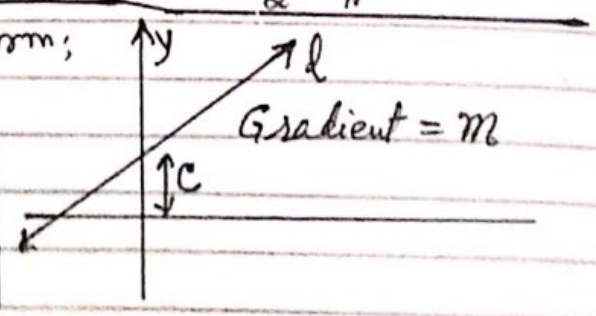 rm;
y
l
Gradient = m
c